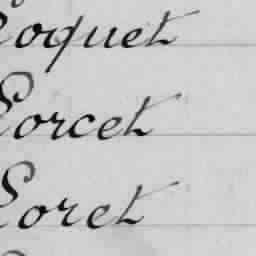 Loquet
Lorcet
Loret